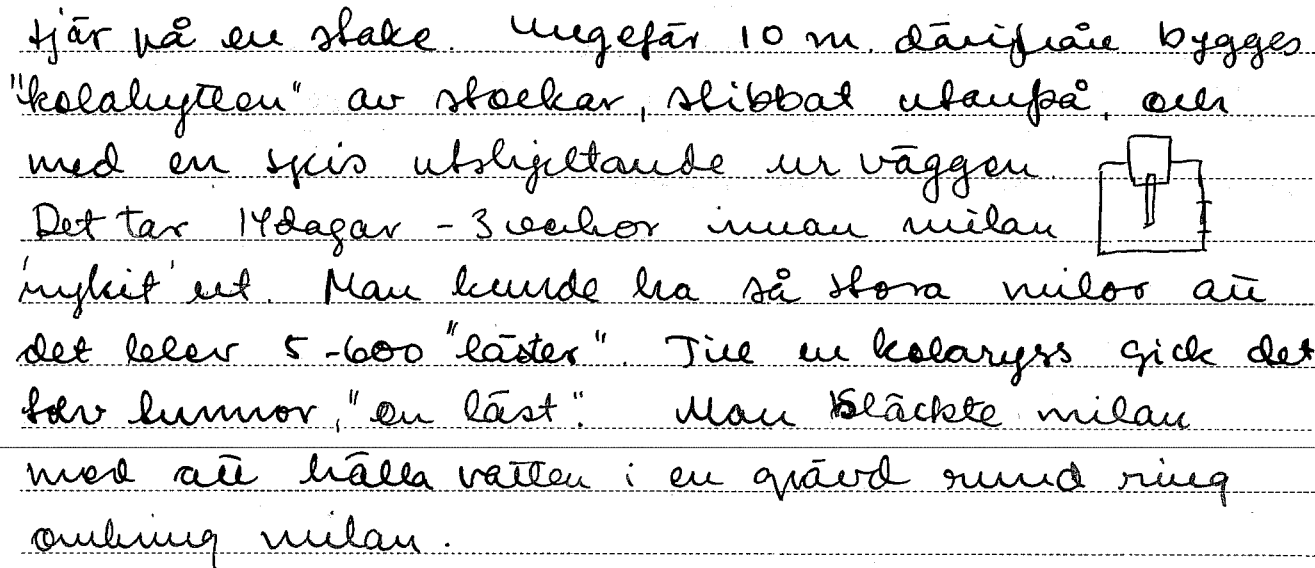 tjär på en stake. Ungefär 10 m. därifrån bygges
"kolahytten" av stockar, stibbat utanpå, och
med en spis utskjeltande ur väggen.
Det tar 14 dagar - 3 veckor innan milan
'rykit' ut. Man kunde ha så stora milor att
det blev 5-600 "läster". Till en kolaryss gick det
tolv tunnor, "en läst". Man släckte milan
med att hälla vatten i en grävd rund ring
omkring milan.